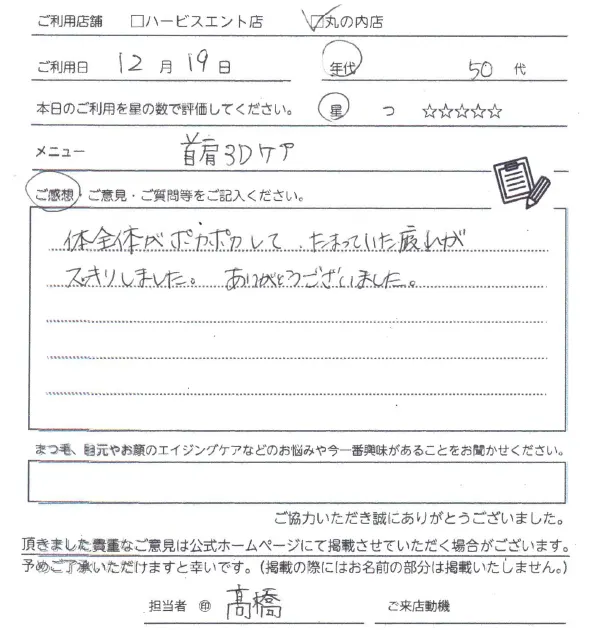 ご利用店舗 □ハービスエント店 ☑丸の内店
ご利用日 12月19日 年代 50代
本日のご利用を星の数で評価してください。 星 つ ☆☆☆☆☆
メニュー 首肩3Dケア
ご感想・ご意見・ご質問等をご記入ください。
体全体がポカポカして、たまっていた疲れが
スッキリしました。 ありがとうございました。
まつ毛、目元やお顔のエイジングケアなどのお悩みや今一番興味があることをお聞かせください。
ご協力いただき誠にありがとうございました。
頂きました貴重なご意見は公式ホームページにて掲載させていただく場合がございます。
予めご了承いただけますと幸いです。（掲載の際にはお名前の部分は掲載いたしません。）
担当者 ㊞ 髙橋 ご来店動機